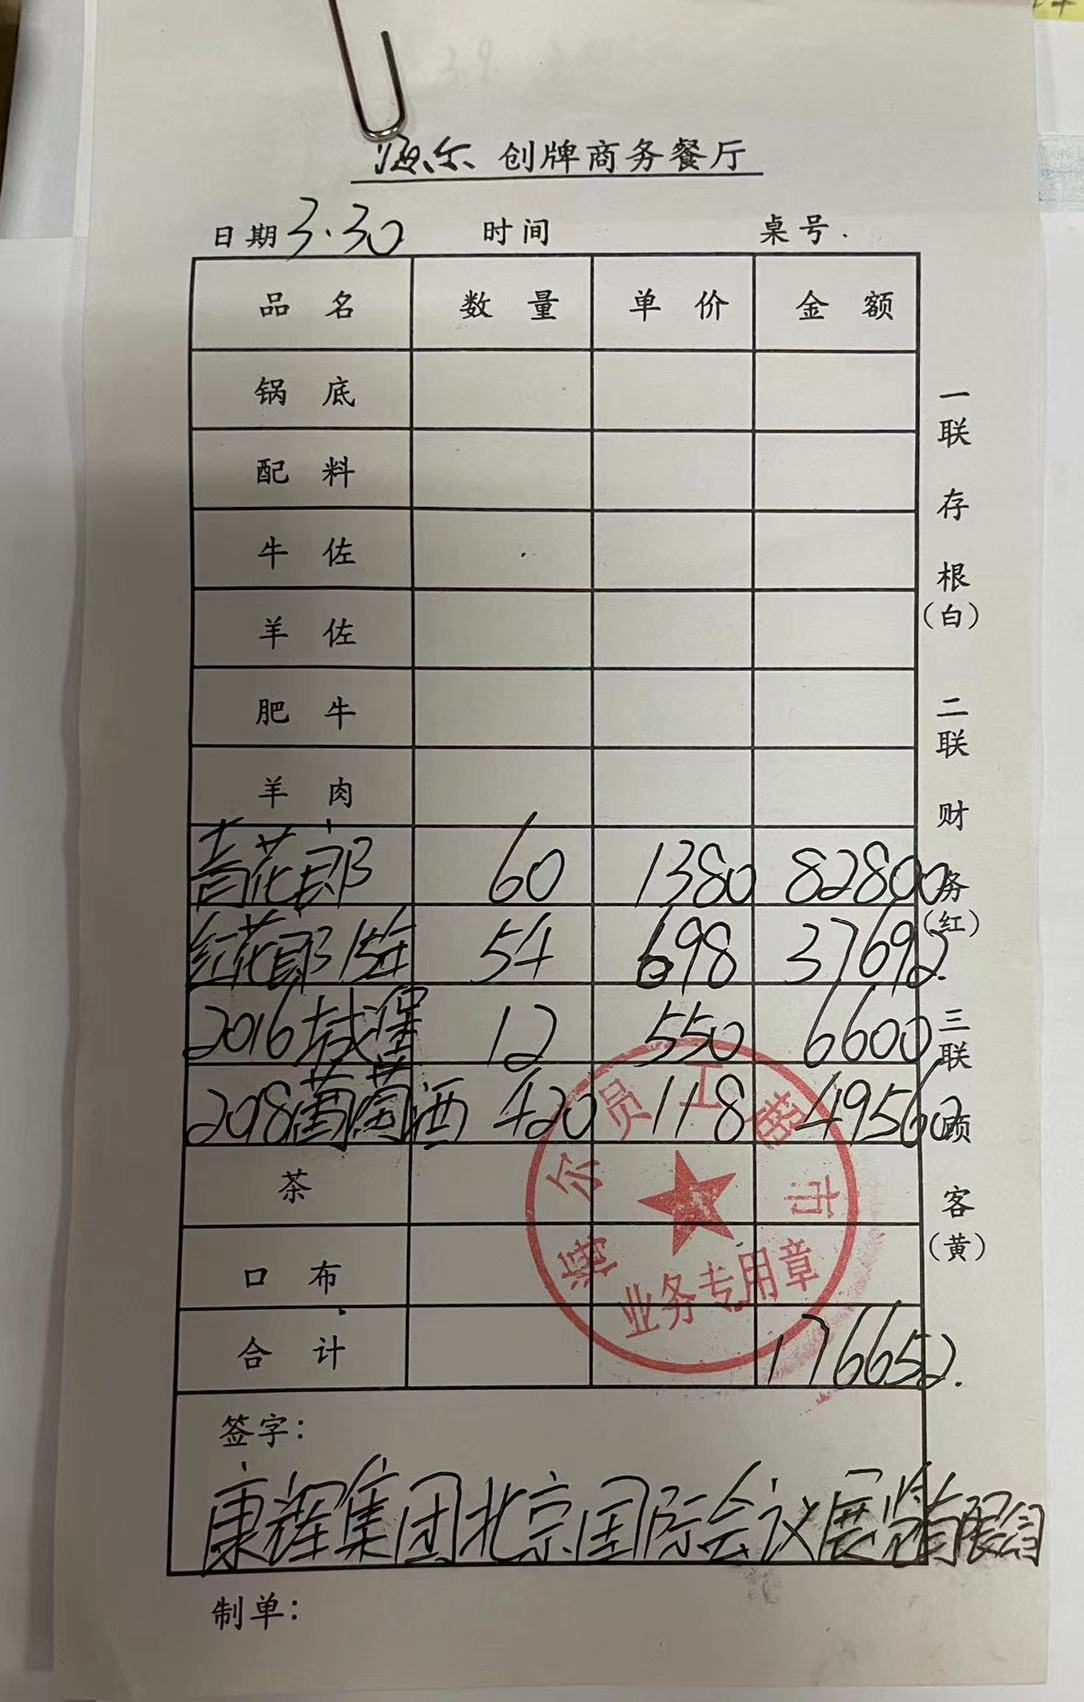 海尔 创牌商务餐厅
日期 3.30 时间 桌号.
品名 数量 单价 金额
锅底
配料
牛佐
羊佐
肥牛
羊肉
青花郎 60 1380 82800
红花郎15年 54 698 37692.
2016城堡 12 550 6600
208葡萄酒 420 118 49560
茶
口布
合计 176652.
签字：
康辉集团北京国际会议展览有限公司
制单：
一联存根（白） 二联财务（红） 三联顾客（黄）
海尔员工超市
业务专用章